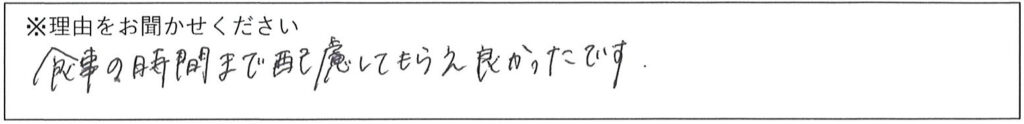 ※理由をお聞かせください
食事の時間まで配慮してもらえ良かったです.